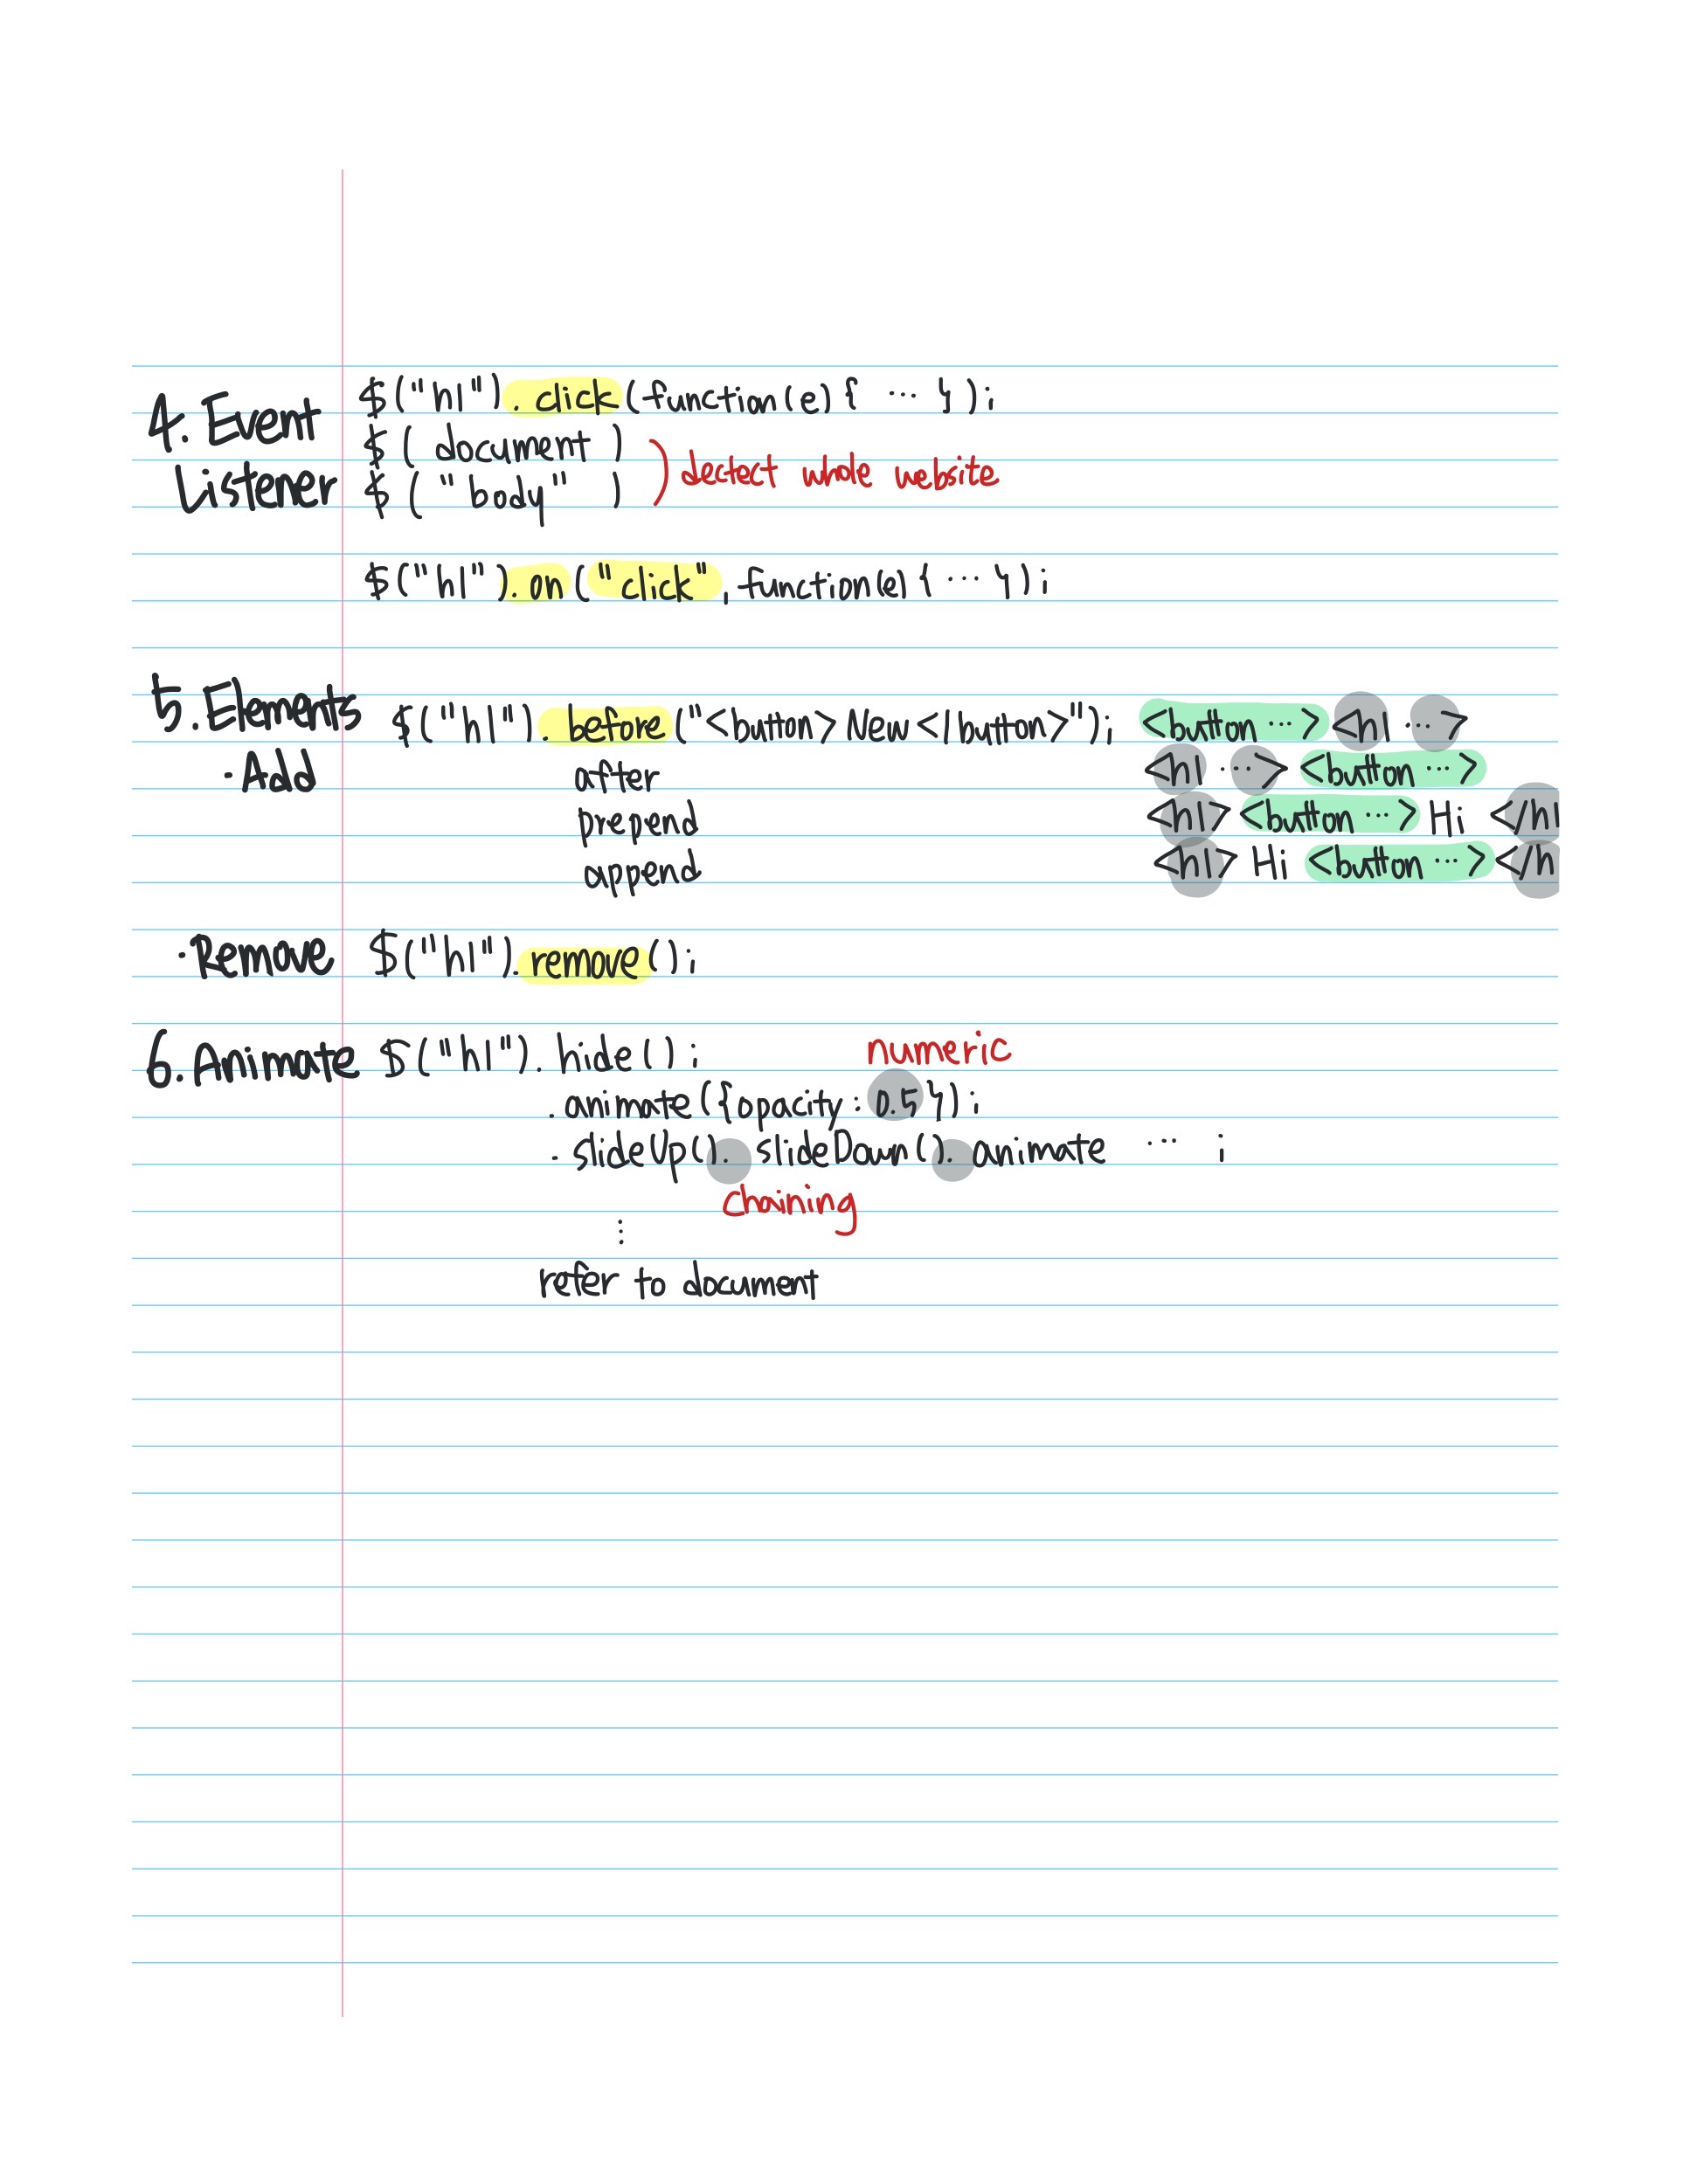 4. Event Listener
$("h1").click(function(e){ ... });
$( document )
$( "body" )
detect whole website
$("h1").on("click", function(e){ ... });
5. Elements
· Add
$("h1").before("<button> New </button>"); <button ...> <h1 ...>
after <h1 ...> <button ...>
prepend <h1> <button ...> Hi </h1
append <h1> Hi <button ...></h
· Remove $("h1").remove();
6. Animate $("h1").hide(); numeric
.animate({opacity: 0.5});
.slideUp().slideDown().animate ... ;
chaining
⋮
refer to document